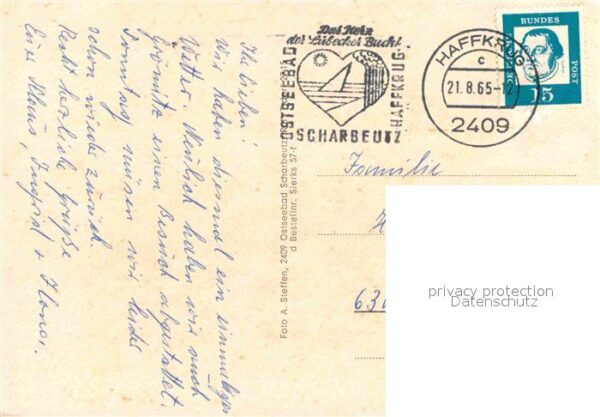 Ihr lieben!
Wir haben diesmal ein einmaliges
Wetter. Neulich haben wir auch
Grömitz einen Besuch abgestattet.
Sonntag müssen wir leider
schon wieder zurück.
Recht herzliche Grüße
Eure Klaus, Ingrid +
Foto A. Steffen, 2409 Ostseebad Scharbeutz
d Bestellnr. Slerks 57-1
Das Herz
der Lübecker Bucht
OSTSEEBAD
HAFFKRUG-
SCHARBEUTZ
HAFFKRUG
c
21.8.65-12
2409
DEUTSCHE
BUNDES
POST
15
Familie
privacy protection
Datenschutz